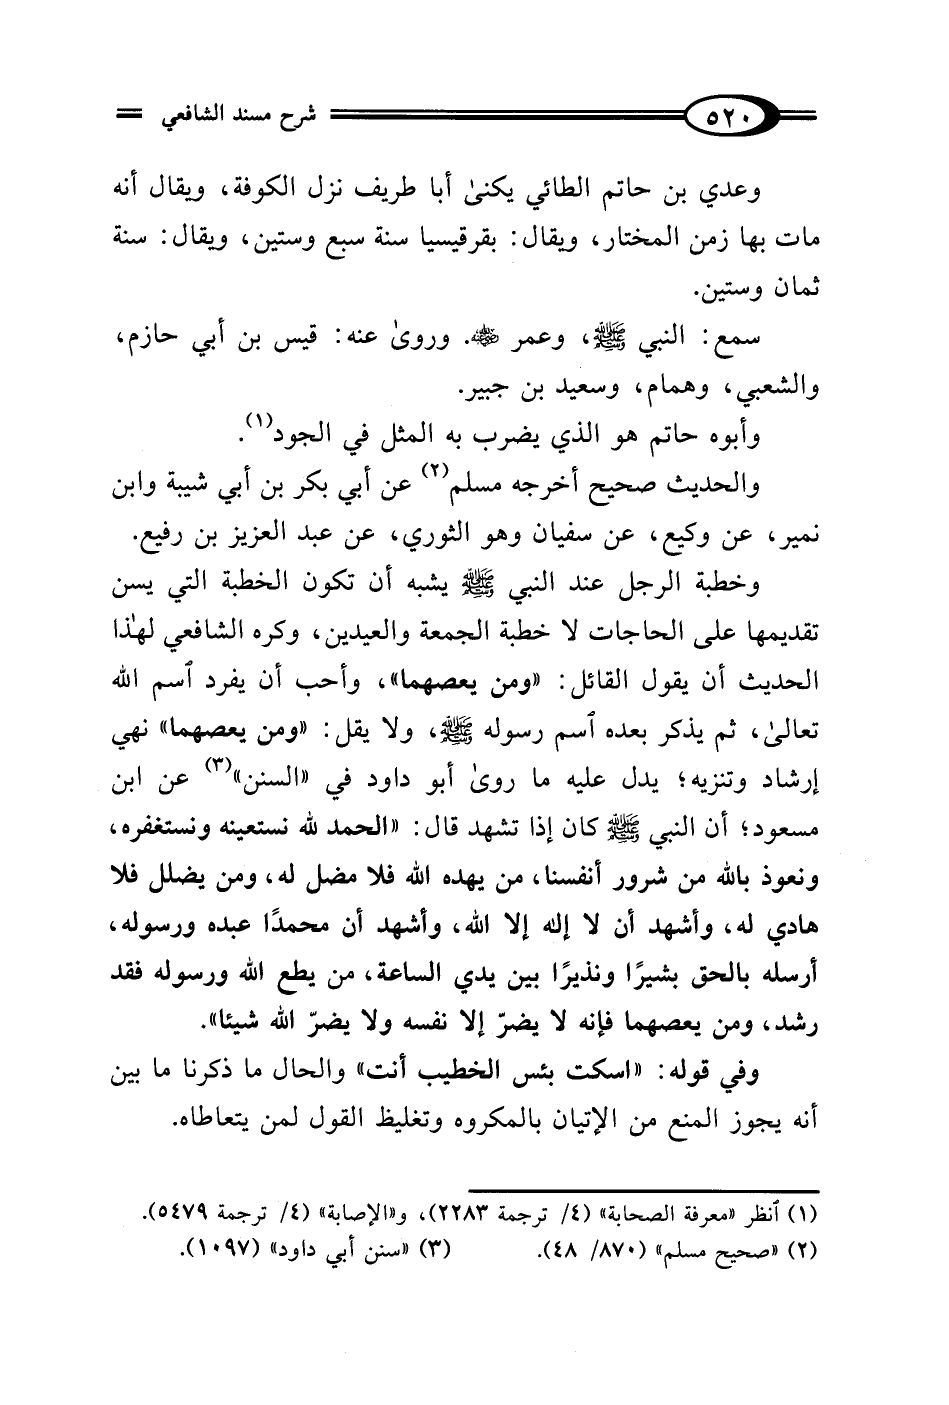 ٥٢٠ شرح مسند الشافعي
وعدي بن حاتم الطائي يكنىٰ أبا طريف نزل الكوفة، ويقال أنه
مات بها زمن المختار، ويقال: بقرقيسيا سنة سبع وستين، ويقال: سنة
ثمان وستين.
سمع: النبي ﷺ، وعمر رضي الله عنه. وروىٰ عنه: قيس بن أبي حازم،
والشعبي، وهمام، وسعيد بن جبير.
وأبوه حاتم هو الذي يضرب به المثل في الجود(١).
والحديث صحيح أخرجه مسلم(٢) عن أبي بكر بن أبي شيبة وابن
نمير، عن وكيع، عن سفيان وهو الثوري، عن عبد العزيز بن رفيع.
وخطبة الرجل عند النبي ﷺ يشبه أن تكون الخطبة التي يسن
تقديمها على الحاجات لا خطبة الجمعة والعيدين، وكره الشافعي لهٰذا
الحديث أن يقول القائل: «ومن يعصهما»، وأحب أن يفرد ٱسم الله
تعالىٰ، ثم يذكر بعده ٱسم رسوله ﷺ، ولا يقل: «ومن يعصهما» نهي
إرشاد وتنزيه؛ يدل عليه ما روىٰ أبو داود في «السنن»(٣) عن ابن
مسعود؛ أن النبي ﷺ كان إذا تشهد قال: «الحمد لله نستعينه ونستغفره،
ونعوذ بالله من شرور أنفسنا، من يهده الله فلا مضل له، ومن يضلل فلا
هادي له، وأشهد أن لا إله إلا الله، وأشهد أن محمدًا عبده ورسوله،
أرسله بالحق بشيرًا ونذيرًا بين يدي الساعة، من يطع الله ورسوله فقد
رشد، ومن يعصهما فإنه لا يضرّ إلا نفسه ولا يضرّ الله شيئا».
وفي قوله: «اسكت بئس الخطيب أنت» والحال ما ذكرنا ما بين
أنه يجوز المنع من الإتيان بالمكروه وتغليظ القول لمن يتعاطاه.
(١) ٱنظر «معرفة الصحابة» (٤/ ترجمة ٢٢٨٣)، و«الإصابة» (٤/ ترجمة ٥٤٧٩).
(٢) «صحيح مسلم» (٨٧٠/ ٤٨). (٣) «سنن أبي داود» (١٠٩٧).